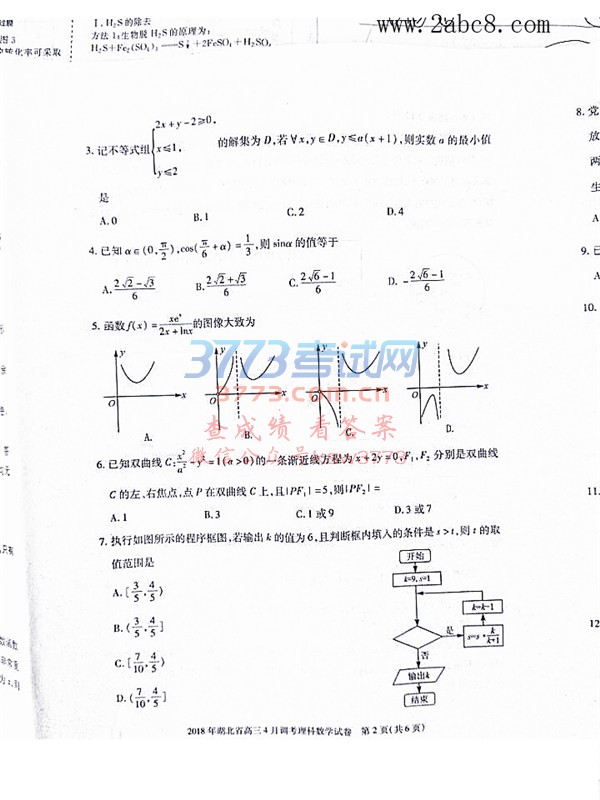 www.2abc8.com
图3
的转化率可采取
1.H₂S的除去
方法1:生物脱H₂S的原理为:
H₂S+Fe₂(SO₄)₃——S↓+2FeSO₄+H₂SO₄
3.记不等式组{2x+y-2≥0, x≤1, y≤2 的解集为D,若∀x,y∈D,y≤a(x+1),则实数a的最小值
是
A.0 B.1 C.2 D.4
4.已知α∈(0,π/2),cos(π/6+α)=1/3,则sinα的值等于
A.(2√2-√3)/6 B.(2√2+√3)/6 C.(2√6-1)/6 D.-(2√6-1)/6
5.函数f(x)=xeˣ/(2x+lnx)的图像大致为
y x O A.
y x O B.
y x O C.
y x O D.
3773考试网
3773.com.cn
查成绩 看答案
微信公众号
6.已知双曲线C:x²/a²-y²=1(a>0)的一条渐近线方程为x+2y=0,F₁,F₂分别是双曲线
C的左、右焦点,点P在双曲线C上,且|PF₁|=5,则|PF₂|=
A.1 B.3 C.1或9 D.3或7
7.执行如图所示的程序框图,若输出k的值为6,且判断框内填入的条件是s>t,则t的取
值范围是
A.[3/5,4/5)
B.(3/5,4/5]
C.[7/10,4/5)
D.(7/10,4/5]
开始
k=9,s=1
k=k-1
是
s=s·k/(k+1)
否
输出k
结束
2018年湖北省高三4月调考理科数学试卷 第2页(共6页)
8.党
放
两
生
A
9.已
10.
11.
12